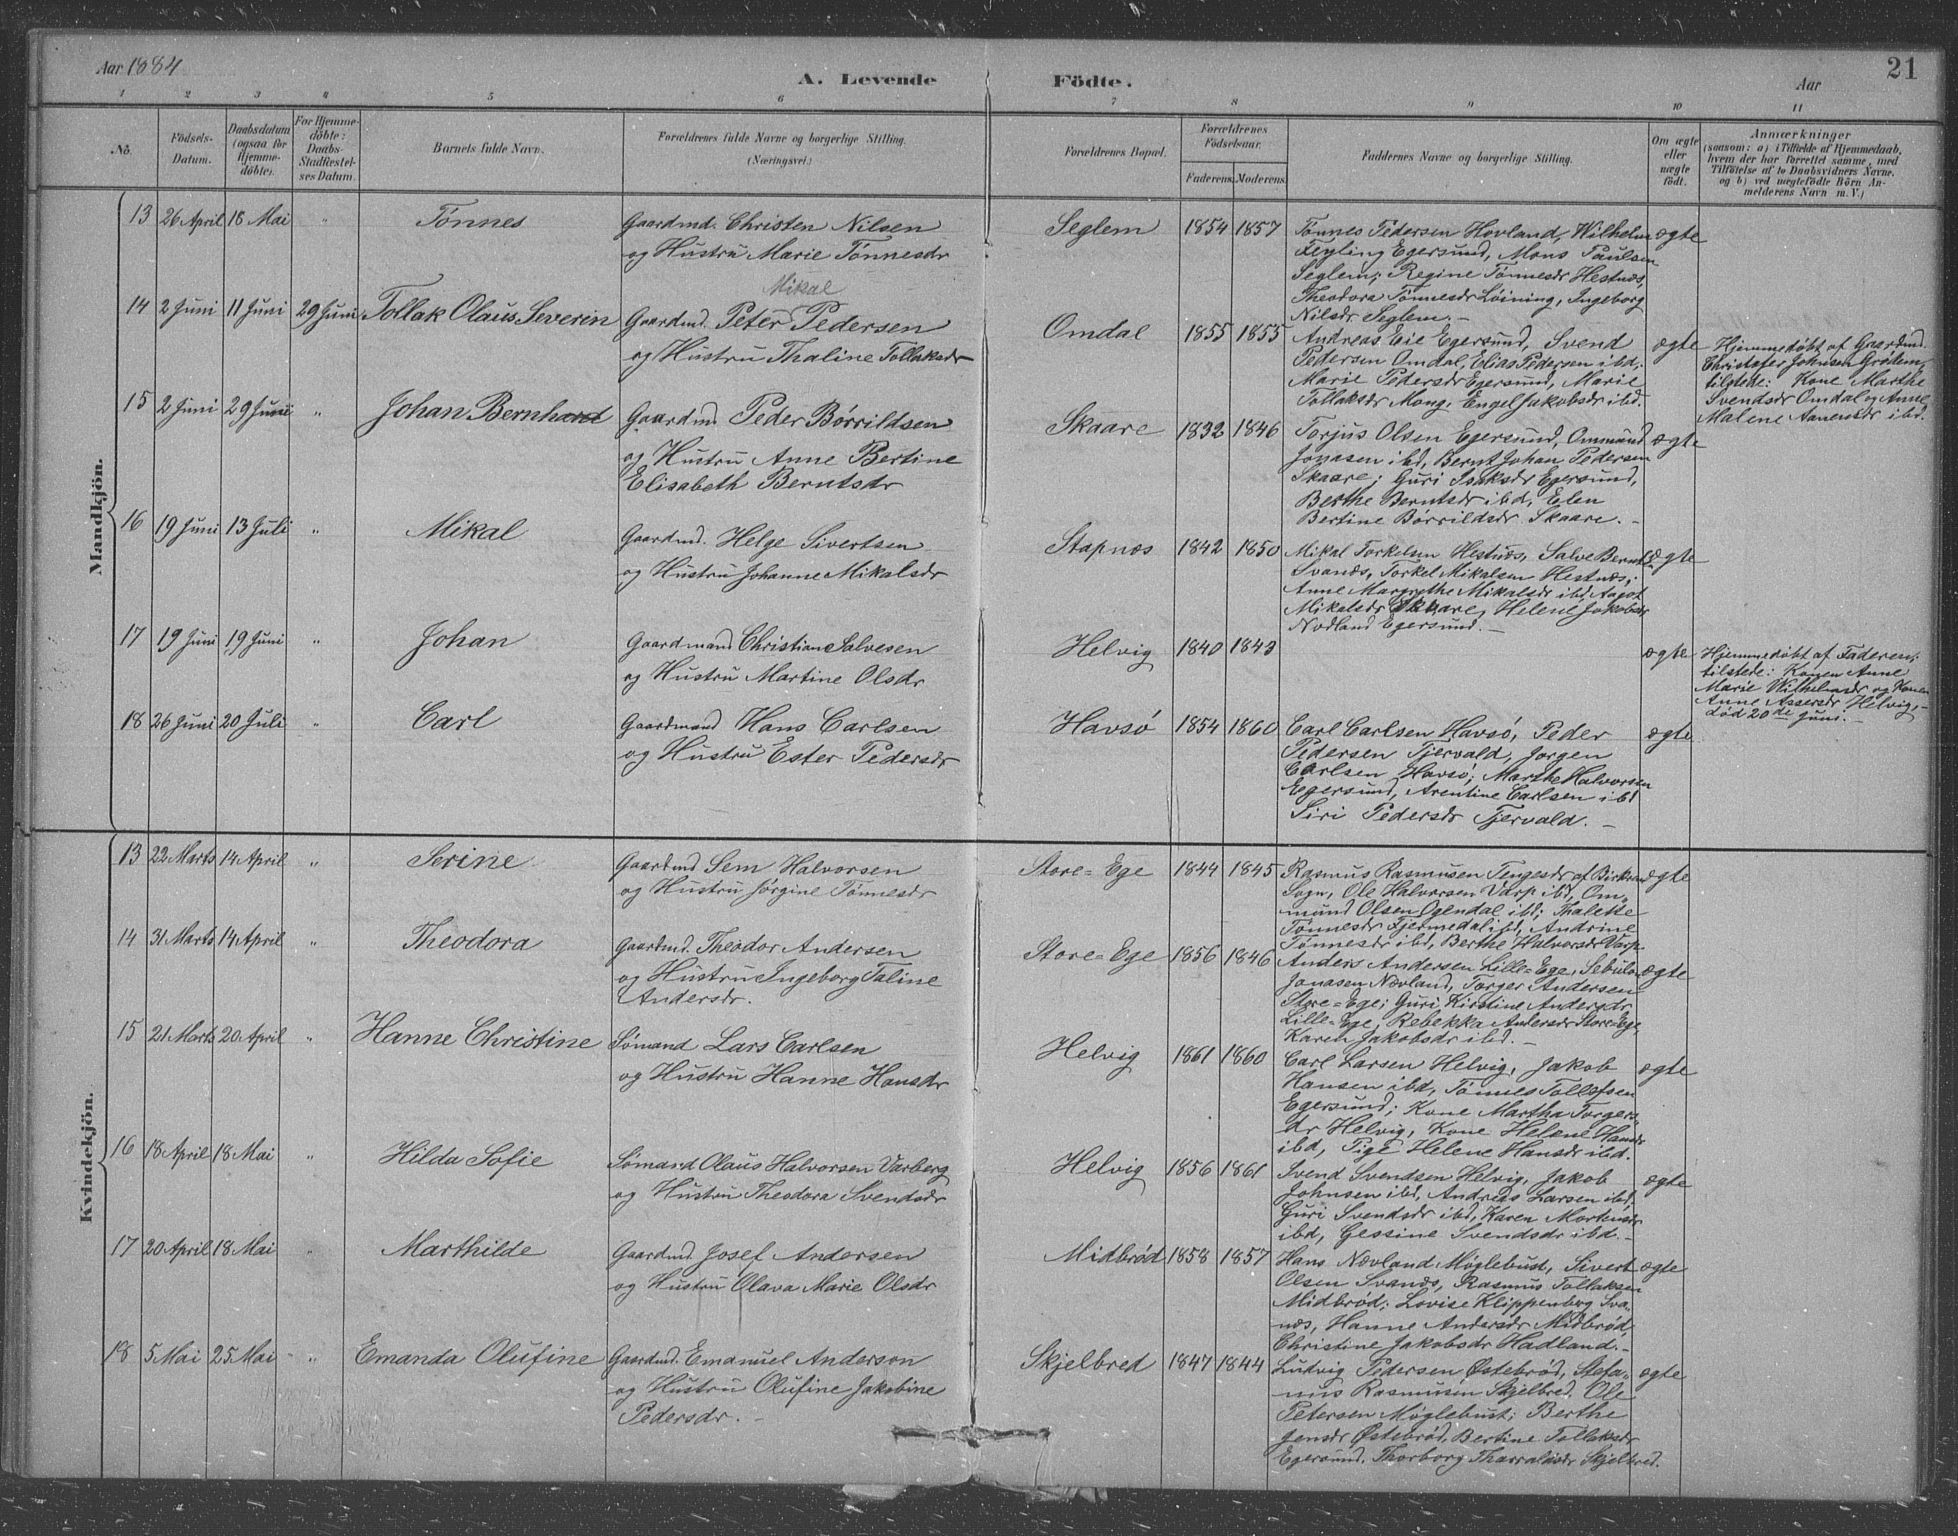 Aar 1884
A. Levende Födte.
Aar
21
1 2 3 4 5 6 7 8 9 10 11
No.
Födsels-Datum.
Daabsdatum (ogsaa for Hjemme-döbte).
For Hjemme-döbte: Daabs-Stadfæstel-ses Datum.
Barnets fulde Navn.
Forældrenes fulde Navne og borgerlige Stilling. (Næringsvei.)
Forældrenes Bopæl.
Forældrenes Födselsaar.
Faderens. Moderens.
Faddernes Navne og borgerlige Stilling.
Om ægte eller uægte födt.
Anmærkninger
(saasom: a) i Tilfælde af Hjemmedaab,
hvem der har forrettet samme, med
Tilföielse af to Daabsvidners Navne,
og b) ved uægtefödte Börn An-
melderens Navn m. V.)
Mandkjön.
13 26 April 18 Mai " Tønnes
Gaardmd. Christen Nilsen
og Hustru Marie Tønnesdr
Seglem 1854 1857
Tønnes Pedersen Hovland, Wilhelm
Feyling Egersund, Mons Paulsen
Seglem; Regine Tønnesdr Hestnes,
Theodora Tønnesdr Løining, Ingeborg
Nilsdr Seglem.-
ægte
14 2 Juni 11 Juni 29 Juni Tollak Olaus Severin
Mikal
Gaardmd. Peter Pedersen
og Hustru Thaline Tollaksdr
Omdal 1855 1855
Andreas Eie Egersund, Svend
Pedersen Omdal, Elias Pedersen ibd,
Marie Pedersdr Egersund, Marie
Tollaksdr Mong, Engel Jakobsdr ibd.
ægte
Hjemmedøbt af Gaardmd.
Christofer Johnsen Grødem,
tilstede: Kone Marthe
Svendsdr Omdal og Anne
Malene ibd.
15 2 Juni 29 Juni " Johan Bernhard
Gaardmd Peder Børrildsen
og Hustru Anne Bertine
Elisabeth Berntsdr
Skaare 1832 1846
Torjus Olsen Egersund, Ommund
Jonasen ibd, Bernt Johan Pedersen
Skaare; Guri Isaksdr Egersund,
Berthe Berntsdr ibd, Elen
Bertine Børrildsdr Skaare.-
ægte
16 19 Juni 13 Juli " Mikal
Gaardmd. Helge Sivertsen
og Hustru Johanne Mikalsdr
Stapnæs 1842 1850
Mikal Torkelsen Hestnæs, Salve Bernts.
Svanæs, Torkel Mikalsen Hestnæs;
Anne Margrethe Mikalsdr ibd, Aagot
Mikalsdr Skaare, Helene Jakobsdr
Nodland Egersund.-
ægte
17 19 Juni 19 Juni " Johan
Gaardmand Christian Salvesen
og Hustru Martine Olsdr
Helvig 1840 1843
ægte
Hjemmedøbt af Faderen;
tilstede: Konen Anne
Marie Wilhelmsdr og Konen
Anne Assersdr Helvig,-
død 20de Juni.-
18 26 Juni 20 Juli " Carl
Gaardmand Hans Carlsen
og Hustru Ester Pedersdr
Havsø 1854 1860
Carl Carlsen Havsø, Peder
Pedersen Tjervald, Jørgen
Carlsen Havsø; Marthe Halvorsen
Egersund, Arentine Carlsen ibd
Siri Pedersdr Tjervald.-
ægte
Kvindekjön.
13 22 Marts 14 April " Serine
Gaardmd Sem Halvorsen
og Hustru Jørgine Tønnesdr
Store-Ege 1844 1845
Rasmus Rasmusen Tengesdr af
Sogn, Ole Halvorsen Varp ibd, Om-
mund Olsen Øgendal ibd; Thalette
Tønnesdr Tjermedal ibd, Andrine
Tønnesdr ibd, Berthe Halvorsdr Varp
ægte
14 31 Marts 14 April " Theodora
Gaardmd. Theodor Andersen
og Hustru Ingeborg Taline
Andersdr.
Store-Ege 1856 1846
Anders Andersen Lille-Ege,
Jonasen Nævland, Torger Andersen
Store-Ege; Guri Kirstine Andersdr
Lille-Ege, Rebekka Andersdr Store-Ege,
Karen Jakobsdr ibd.-
ægte
15 21 Marts 20 April " Hanne Christine
Sømand Lars Carlsen
og Hustru Hanne Hansdr
Helvig 1861 1860
Carl Larsen Helvig, Jakob
Hansen ibd, Tønnes Tollefsen
Egersund; Kone Martha Torgers-
dr Helvig, Kone Helene Hansdr
ibd, Pige Helene Hansdr ibd.
ægte
16 18 April 18 Mai " Hilda Sofie
Sømand Olaus Halvorsen Varberg
og Hustru Theodora Svendsdr
Helvig 1856 1861
Svend Svendsen Helvig, Jakob
Johnsen ibd, Andreas Larsen ibd,
Guri Svendsdr ibd, Karen Mortensdr
ibd, Gessine Svendsdr ibd.-
ægte
17 20 April 18 Mai " Marthilde
Gaardmd. Josef Andersen
og Hustru Olava Marie Olsdr
Midbrød 1858 1857
Hans Nævland Møglebust, Sivert
Olsen Svanæs, Rasmus Tollaksen
Midbrød; Lovise Klippenberg Sva-
næs, Hanne Andersdr Midbrød,
Christine Jakobsdr Hadland.-
ægte
18 5 Mai 25 Mai " Emanda Olufine
Gaardmd. Emanuel Anderson
og Hustru Olufine Jakobine
Pedersdr.-
Skjelbred 1847 1844
Ludvig Pedersen Østebrød, Stefa-
nus Rasmusen Skjelbred, Ole
Petersen Møglebust; Berthe
Jensdr Østebrød, Bertine Tollaksdr
Egersund, Thorborg Skjelbred.
ægte